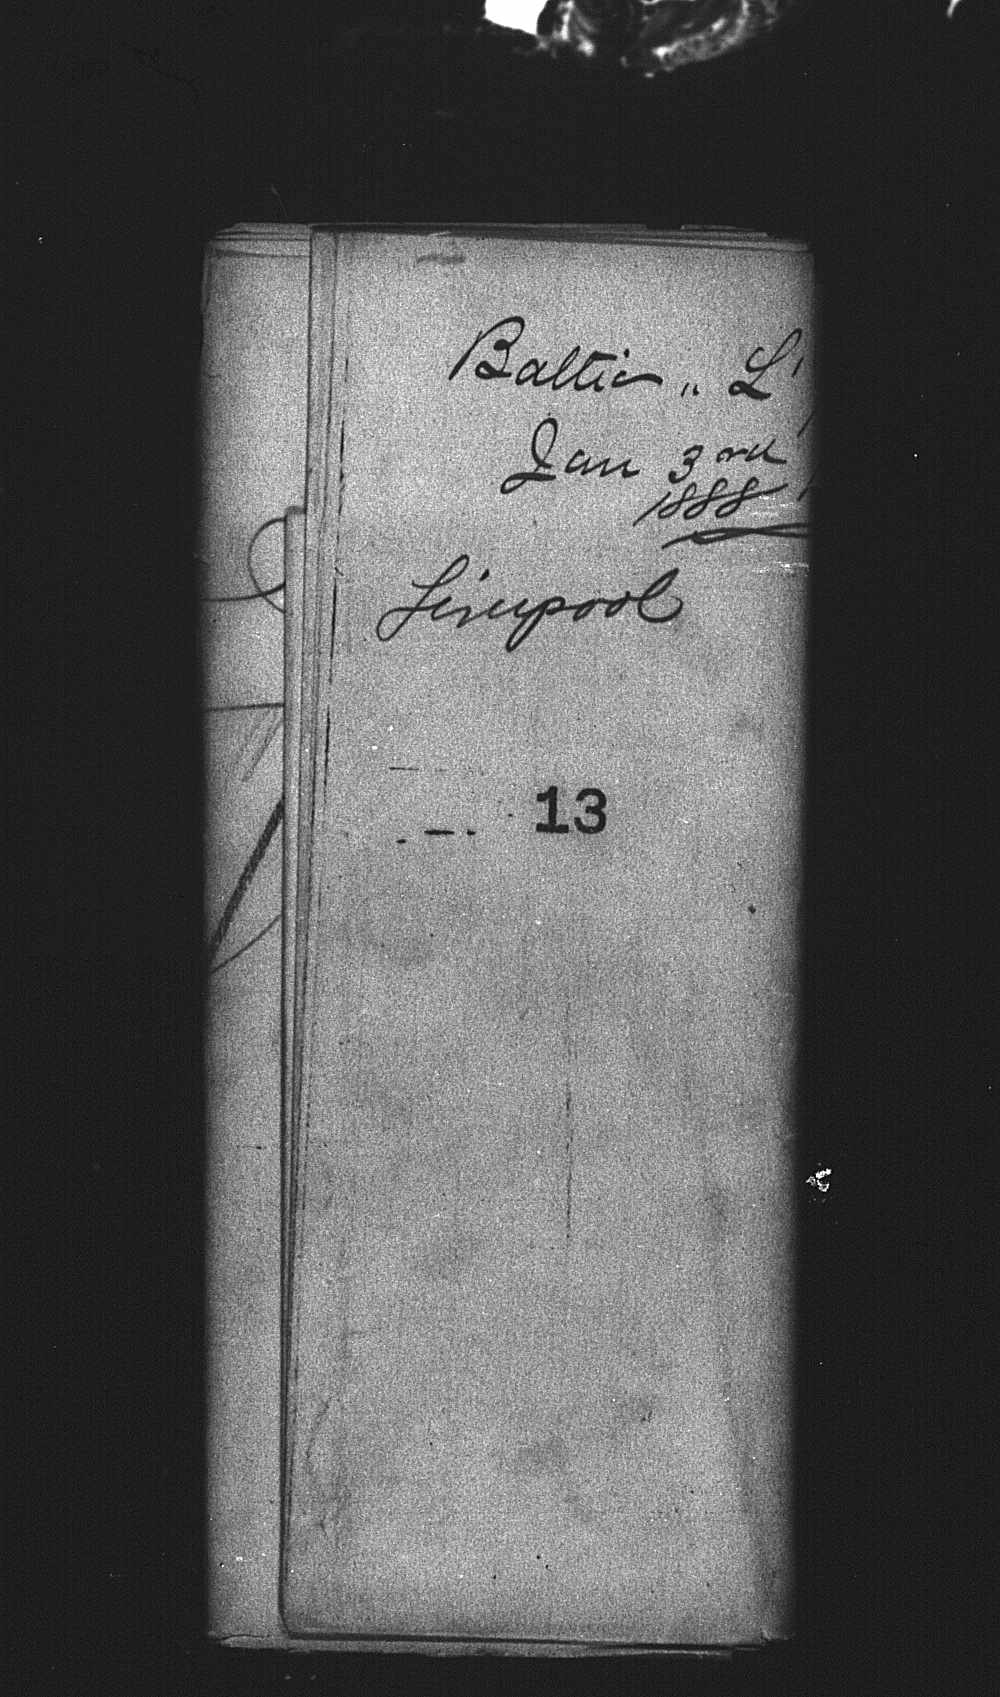 Baltic " L'
Jan 3rd
1888
Liverpool
13